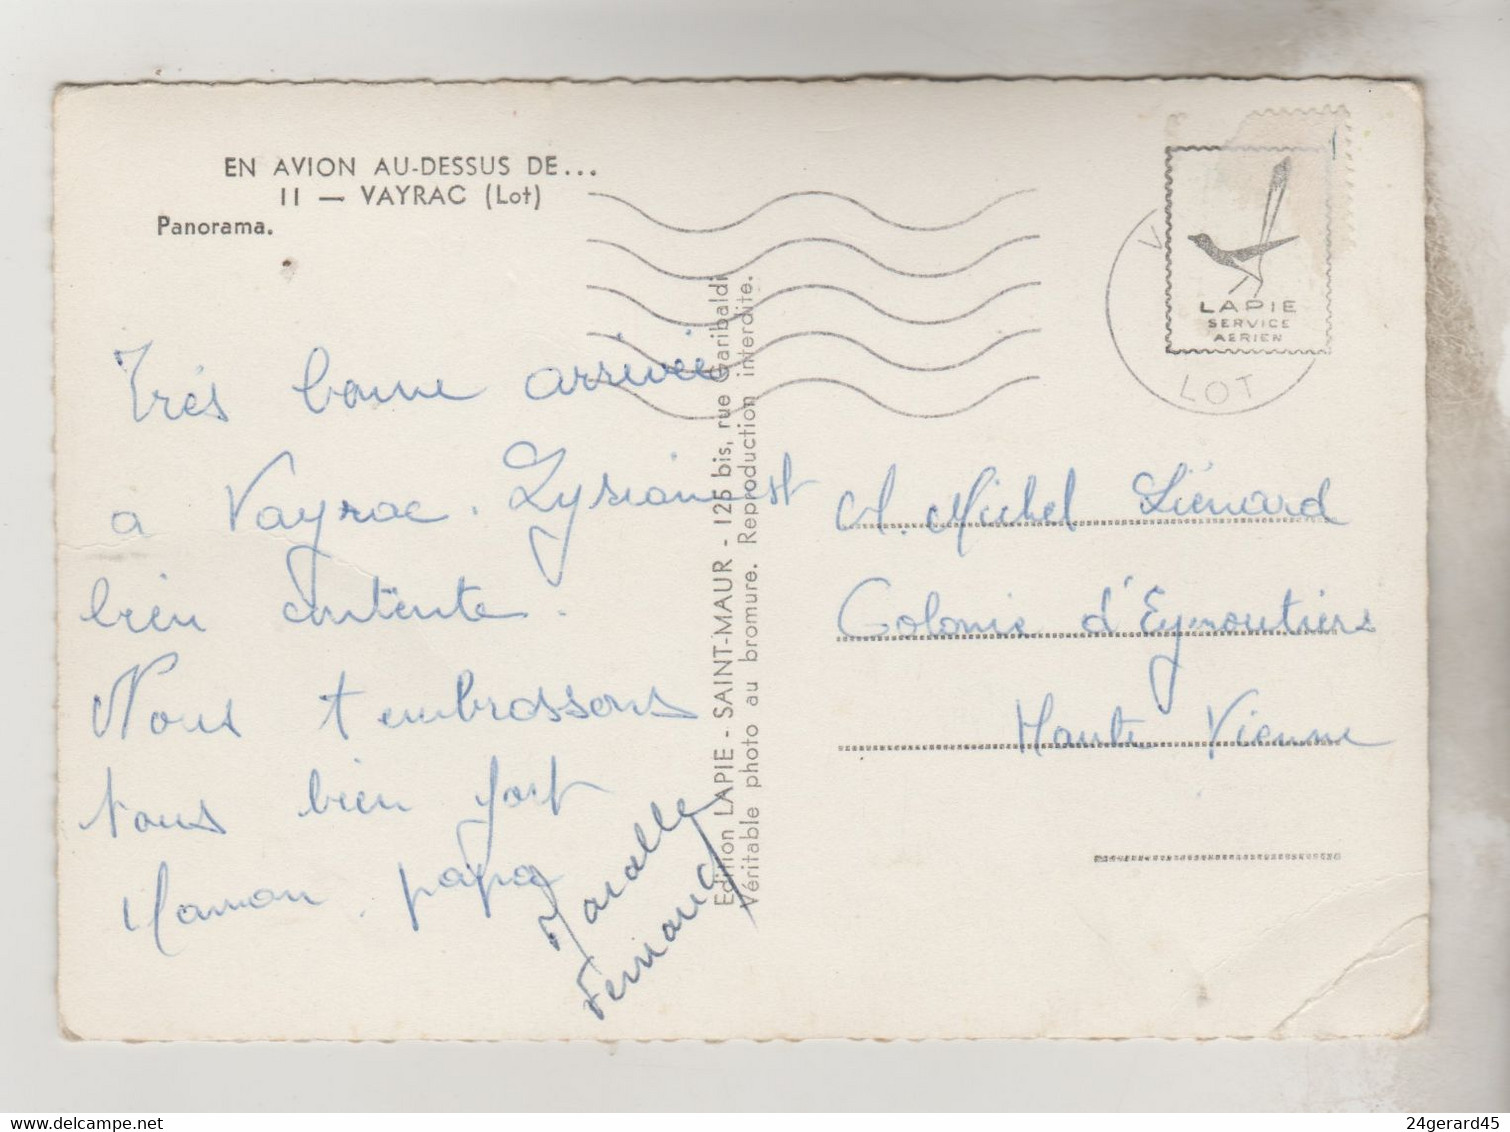 EN AVION AU-DESSUS DE...
11 — VAYRAC (Lot)
Panorama.
Très bonne arrivée
a Vayrac. Lysiane est
bien contente.
Nous t'embrassons
tous bien fort
Maman papa
Fernand
Edition LAPIE - SAINT-MAUR - 125 bis, rue Garibaldi
Véritable photo au bromure. Reproduction interdite.
V
LOT
LAPIE
SERVICE
AERIEN
M. Michel Liénard
Colonie d'Eymoutiers
Haute Vienne
delcampe.net
24gerard45